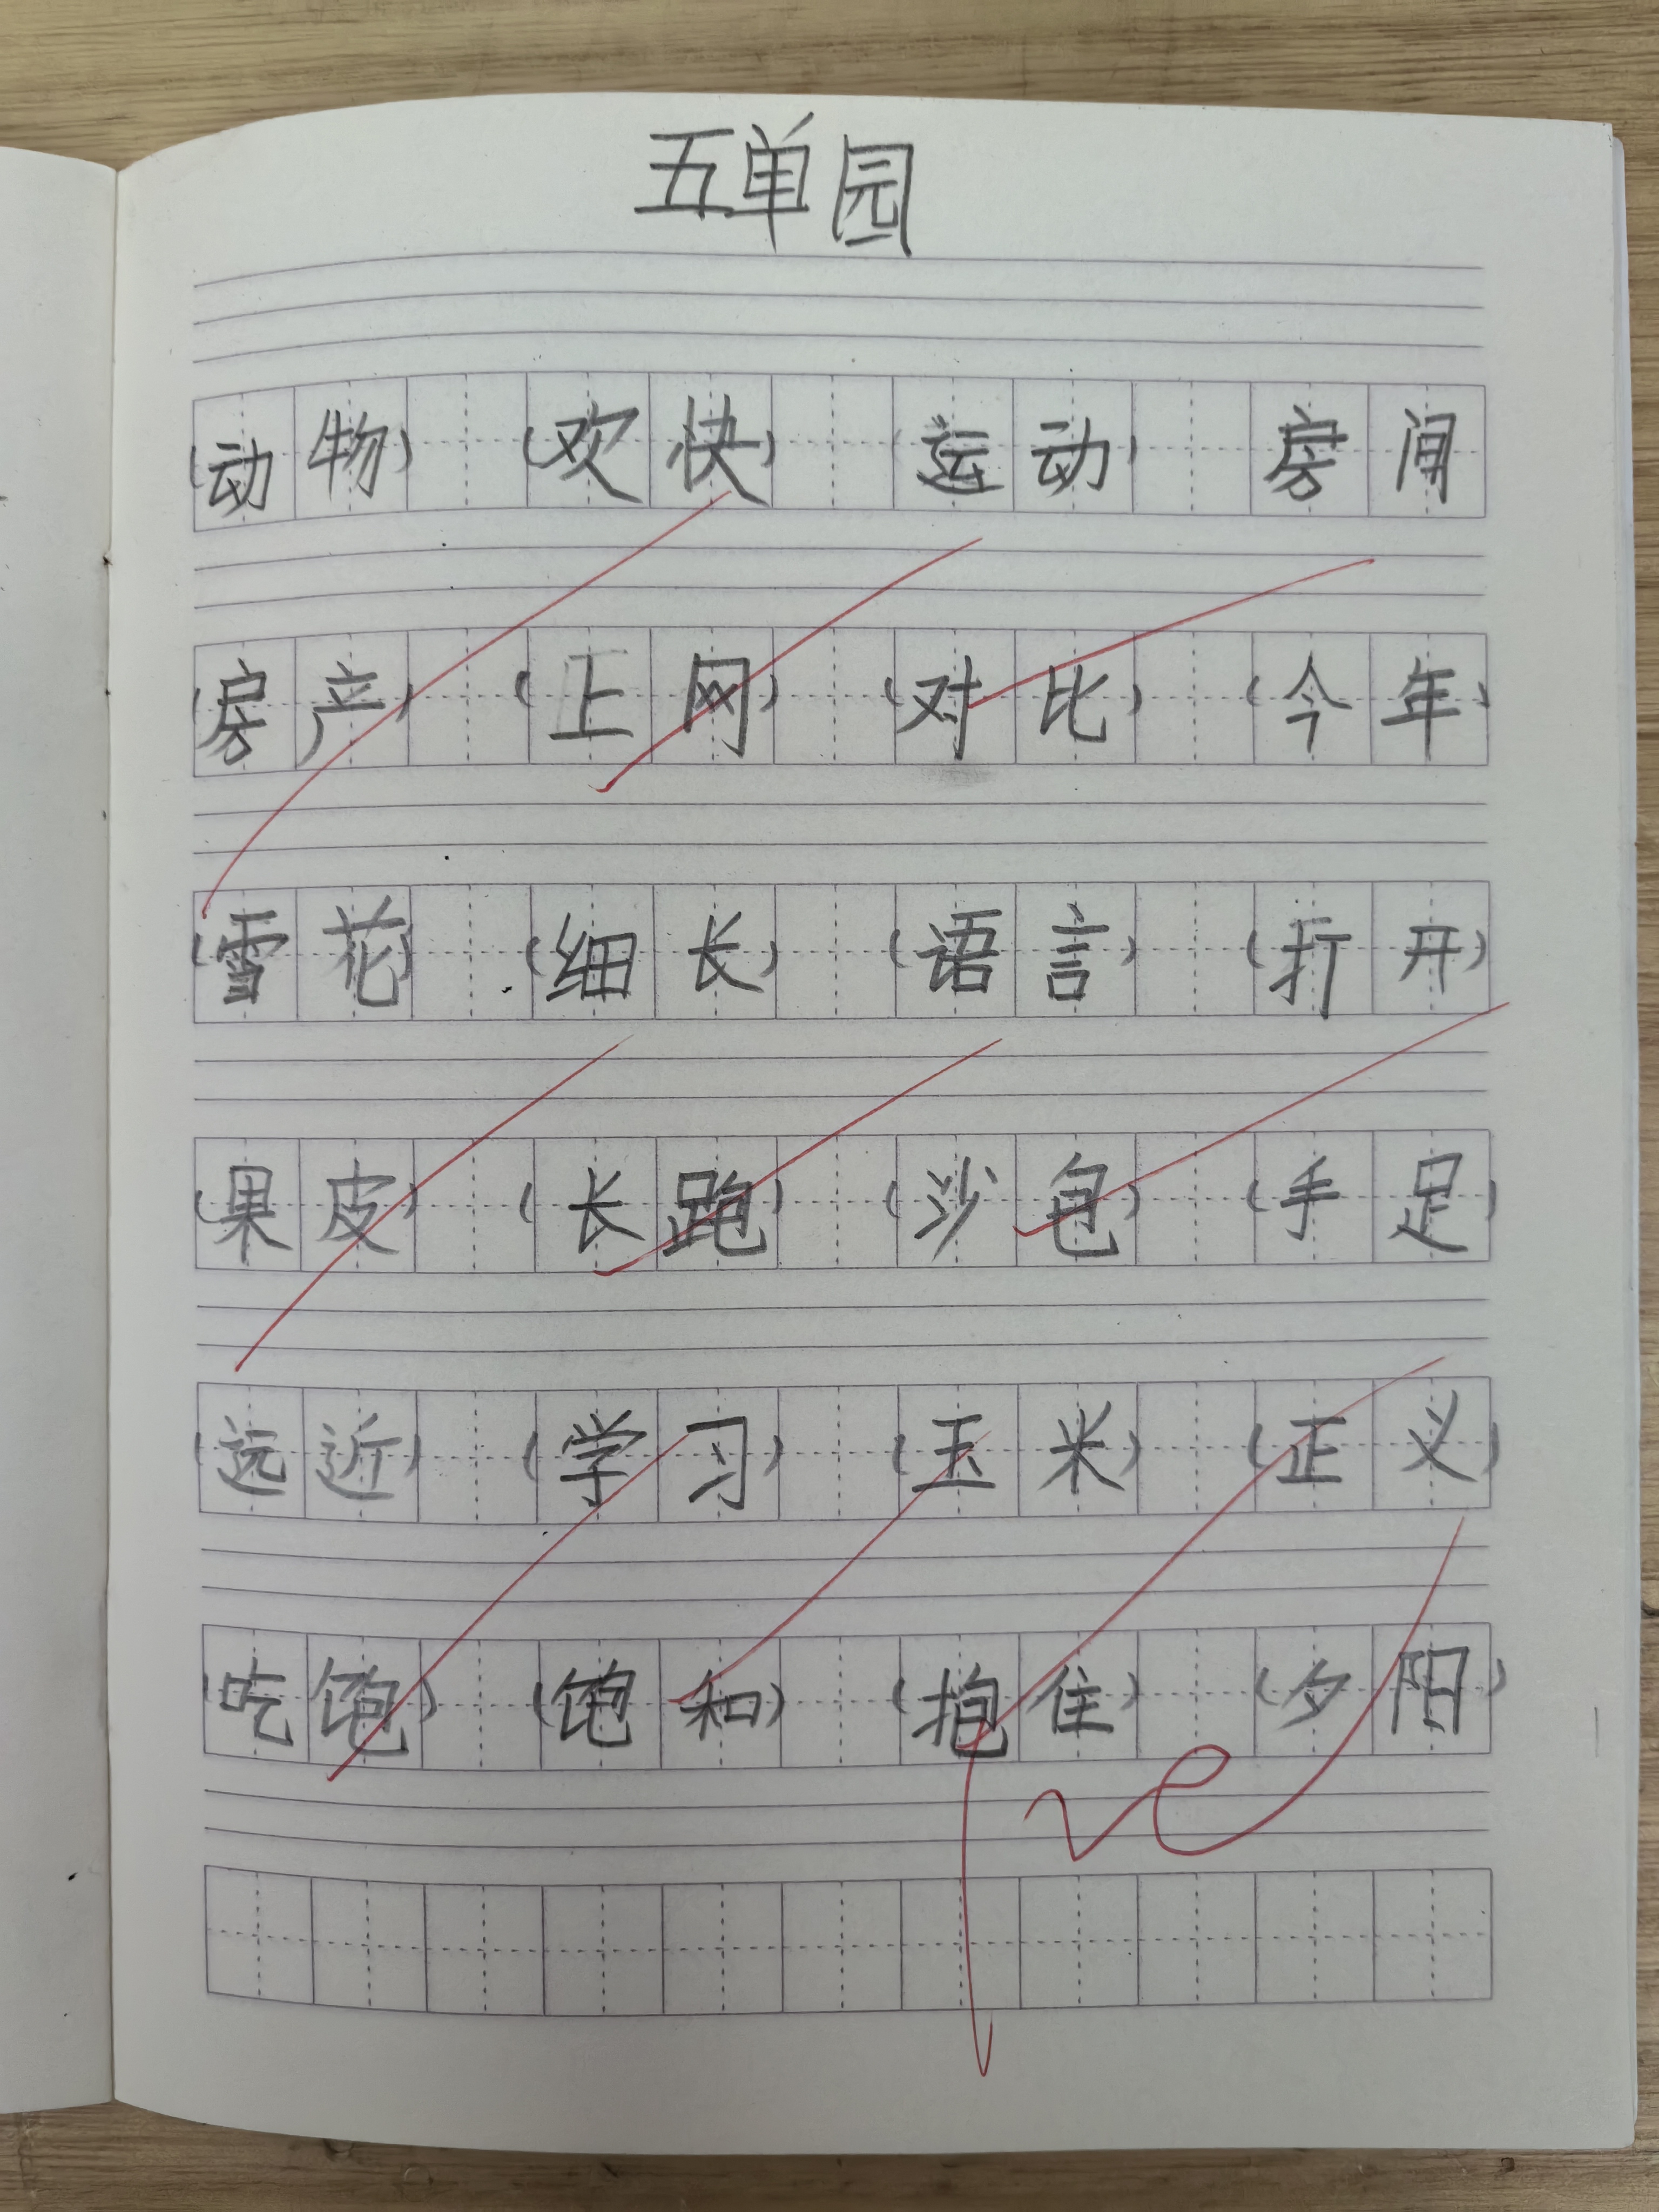 五单园
(动物) (欢快) (运动) 房间
(房产) (上网) (对比) (今年)
(雪花) (细长) (语言) (打开)
(果皮) (长跑) (沙包) (手足)
(远近) (学习) (玉米) (正义)
(吃饱) (饱和) (抱住) (夕阳)